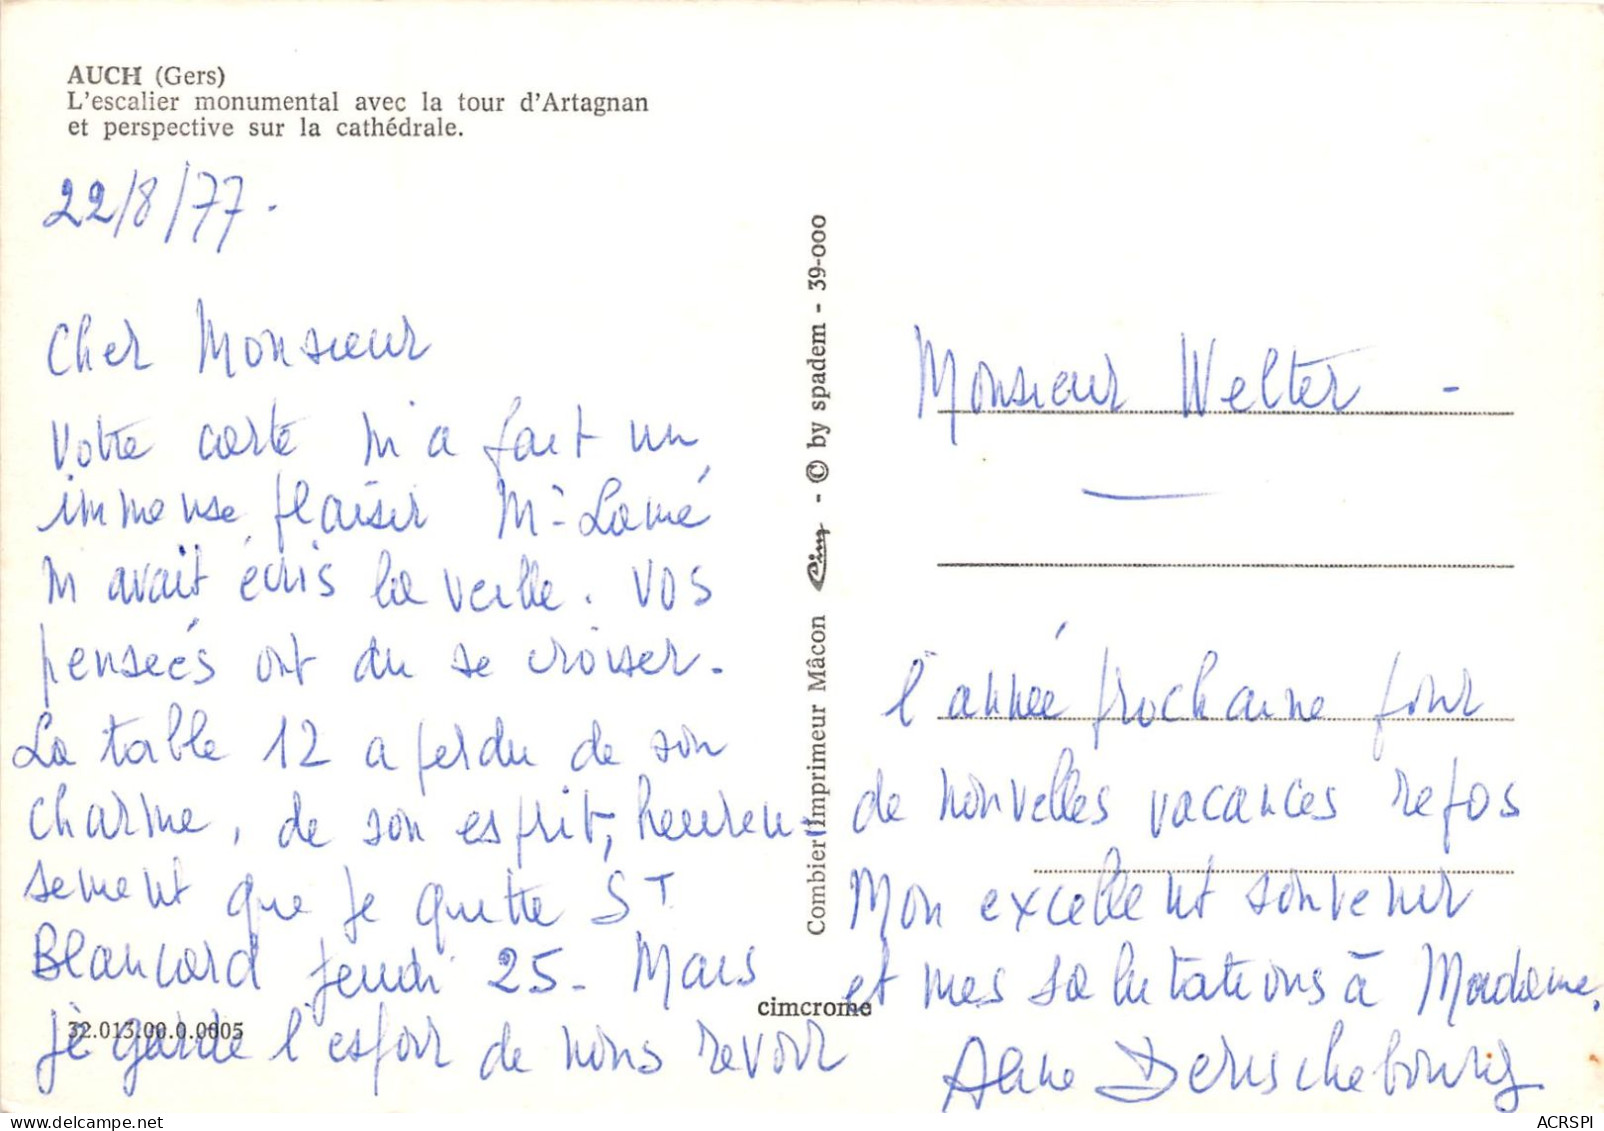 AUCH (Gers)
L'escalier monumental avec la tour d'Artagnan
et perspective sur la cathédrale.
22/8/77.
Cher Monsieur
Votre carte m'a fait un
immense plaisir M- Lamé
m'avait écris la veille. Vos
pensées ont du se croiser.
La table 12 a perdu de son
charme, de son esprit, heureu-
sement que je quitte ST
Blancard jeudi 25- Mais
je garde l'espoir de nous revoir
32.013.00.0.0005
Combier Imprimeur Mâcon Cim - © by spadem - 39-000
cimcrome
Monsieur Welter -
l'année prochaine pour
de nouvelles vacances repos
Mon excellent souvenir
et mes salutations à Madame.
ACRSPI